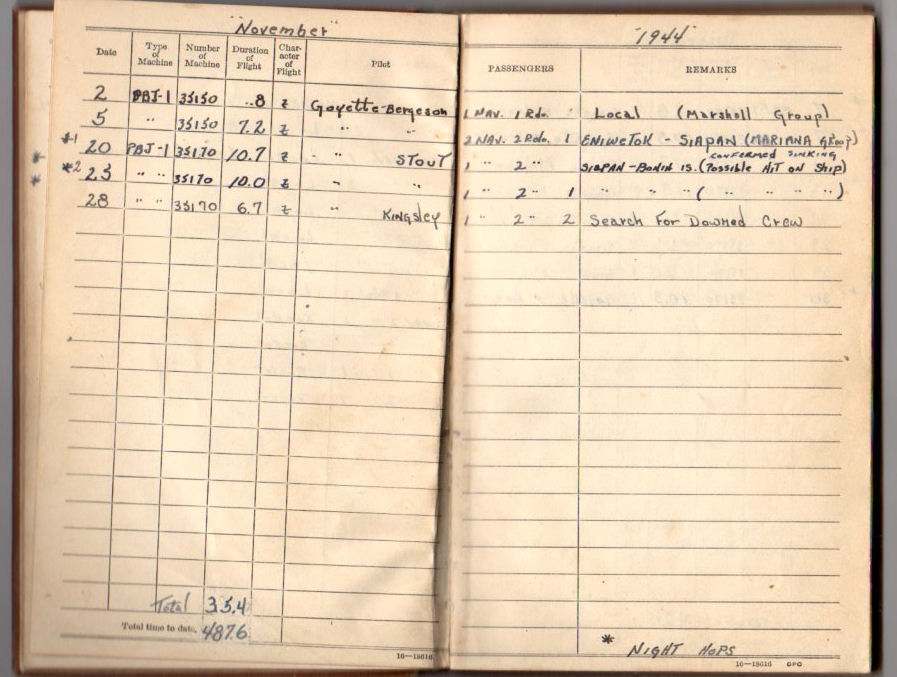 "November"
1944
Date Type of Machine Number of Machine Duration of Flight Char-acter of Flight Pilot PASSENGERS REMARKS
2 PBJ-1 35150 .8 Z Goyette-Bergeson 1 NAV. 1 Rdo. Local (Marshall Group)
5 " 35150 7.2 Z " " 2 NAV. 2 Rdo. 1 ENIWETOK - SIAPAN (MARIANA GRoup)
CONFERMED SINKING
* *1 20 PBJ-1 35170 10.7 Z " " STOUT 1 " 2 " SIAPAN-BONIN IS. (Possible HIT ON Ship)
* *2 23 " " 35170 10.0 Z " " 1 " 2 " 1 " " " ( " " " " )
28 " " 35170 6.7 Z " Kingsley 1 " 2 " 2 Search For Downed Crew
Total 35.4
Total time to date, 487.6
* NIGHT HOPS
16—18616
16—18616 GPO